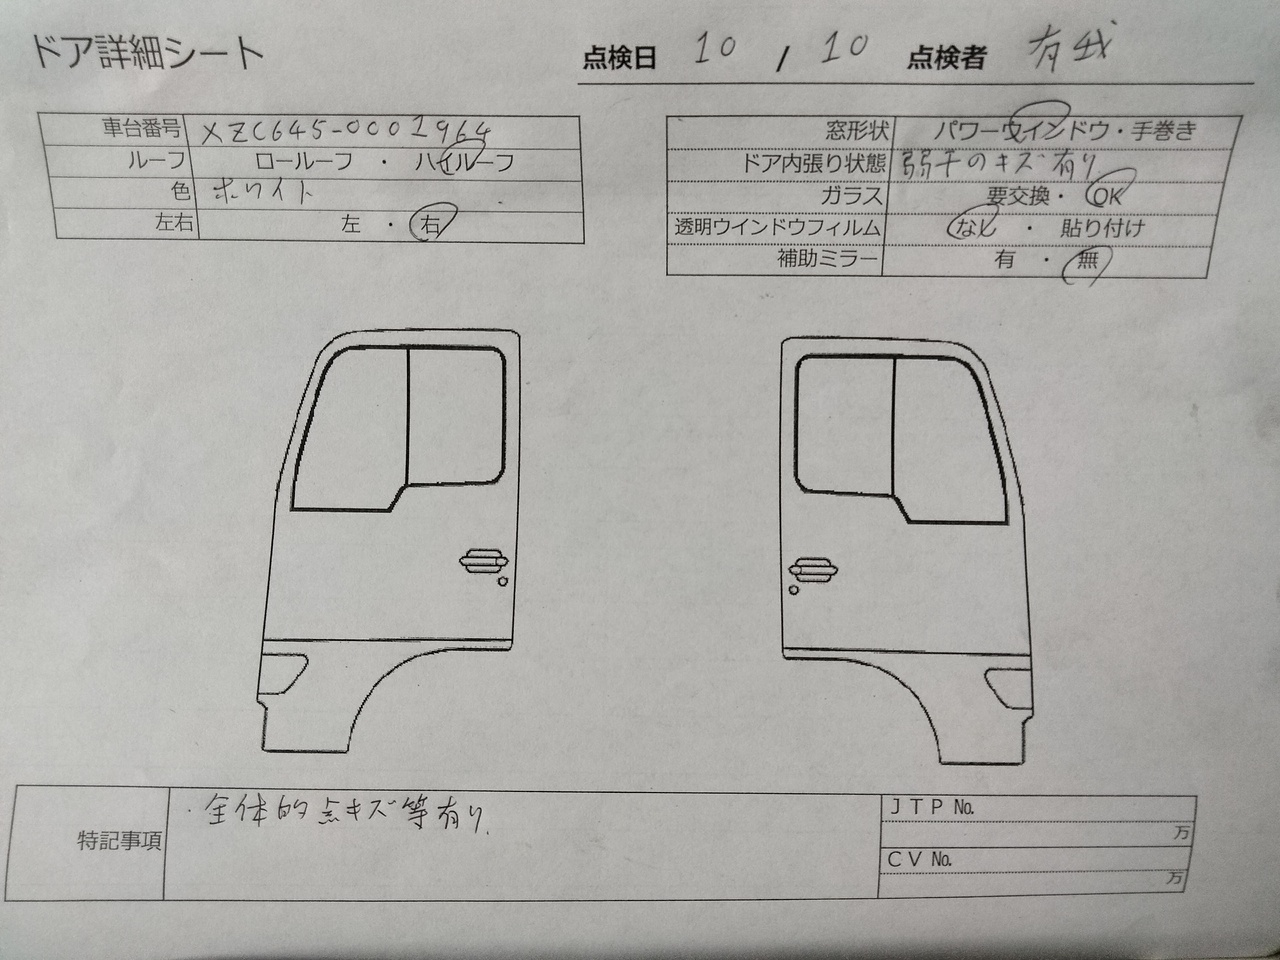 ドア詳細シート
点検日 10 / 10 点検者 有我
車台番号 XZC645-0001964
ルーフ ロールーフ ・ ハイルーフ
色 ホワイト
左右 左 ・ 右
窓形状 パワーウインドウ・手巻き
ドア内張り状態 弱干のキズ有り
ガラス 要交換・ OK
透明ウインドウフィルム なし ・ 貼り付け
補助ミラー 有 ・ 無
特記事項 ・全体的点キズ等有り
JTP No.
万
CV No.
万